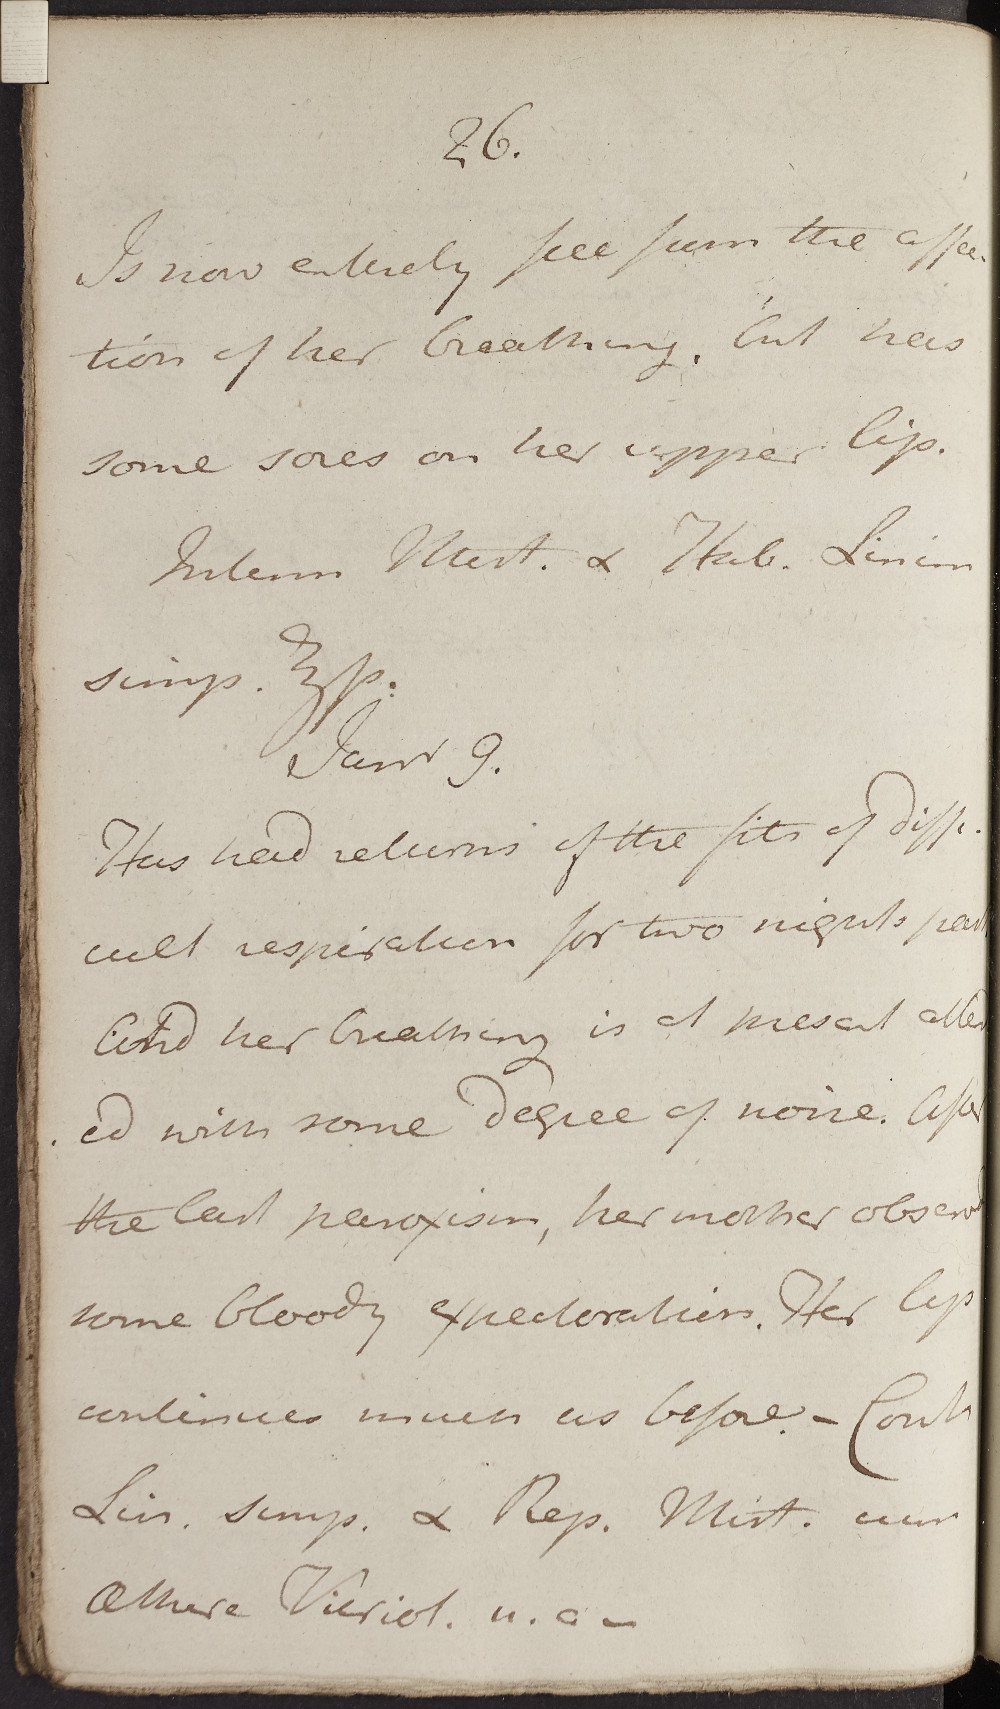 26.
Is now entirely free from the affec-
tion of her breathing, but has
some sores on her upper lip.
Interm Mist. & Hab. Linim
simp. ℥ß.
Janr 9.
Has had returns of the fits of diffi-
cult respiration for two nights past
And her breathing is at present attend
ed with some degree of noise. After
the last paroxism, her mother observd
some bloody expectoration. Her lip
continues much as before. - Contr
Lin. simp. & Rep. Mist. cum
Æthere Vitriol. u. a -